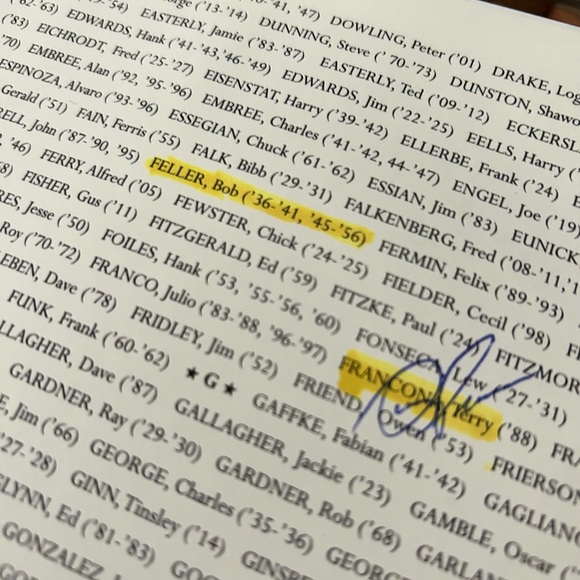 '41, '47) DOWLING, Peter ('01) DRAKE, Log
rge ('13-'14) DUNNING, Steve ('70-'73) DUNSTON, Shawo
-'54) EASTERLY, Jamie ('83-'87) EASTERLY, Ted ('09-'12) ECKERSL
('62-'63) EDWARDS, Hank ('41-'43,'46-'49) EDWARDS, Jim ('22-'25) EELLS, Harry ('
('83) EICHRODT, Fred ('25-'27) EISENSTAT, Harry ('39-'42) ELLERBE, Frank ('24) E
'70) EMBREE, Alan ('92, '95-'96) EMBREE, Charles ('41-'42, 44-'47) ENGEL, Joe ('19)
ESPINOZA, Alvaro ('93-'96) ESSEGIAN, Chuck ('61-'62) ESSIAN, Jim ('83) EUNICK
Gerald ('51) FAIN, Ferris ('55) FALK, Bibb ('29-'31) FALKENBERG, Fred ('08-'11,'1
RELL, John ('87-'90, '95) FELLER, Bob ('36-'41, '45-'56) FERMIN, Felix ('89-'93)
'46) FERRY, Alfred ('05) FEWSTER, Chick ('24-'25) FIELDER, Cecil ('98) FI
8) FISHER, Gus ('11) FITZGERALD, Ed ('59) FITZKE, Paul ('24) FITZMOR
RES, Jesse ('50) FOILES, Hank ('53, '55-'56, '60) FONSECA, Lew ('27-'31)
Roy ('70-'72) FRANCO, Julio ('83-'88, '96-'97) FRANCONA, Terry ('88) FRA
EBEN, Dave ('78) FRIDLEY, Jim ('52) FRIEND, Owen ('53) FRIERSON
FUNK, Frank ('60-'62) ★ G ★ GAFFKE, Fabian ('41-'42) GAGLIANO
LLAGHER, Dave ('87) GALLAGHER, Jackie ('23) GAMBLE, Oscar ('
GARDNER, Ray ('29-'30) GARDNER, Rob ('68) GARLAN
E, Jim ('66) GEORGE, Charles ('35-'36) GEORG
'27-'28) GINN, Tinsley ('14) GINSB
LYNN, Ed ('81-'83) GO
GONZALEZ,